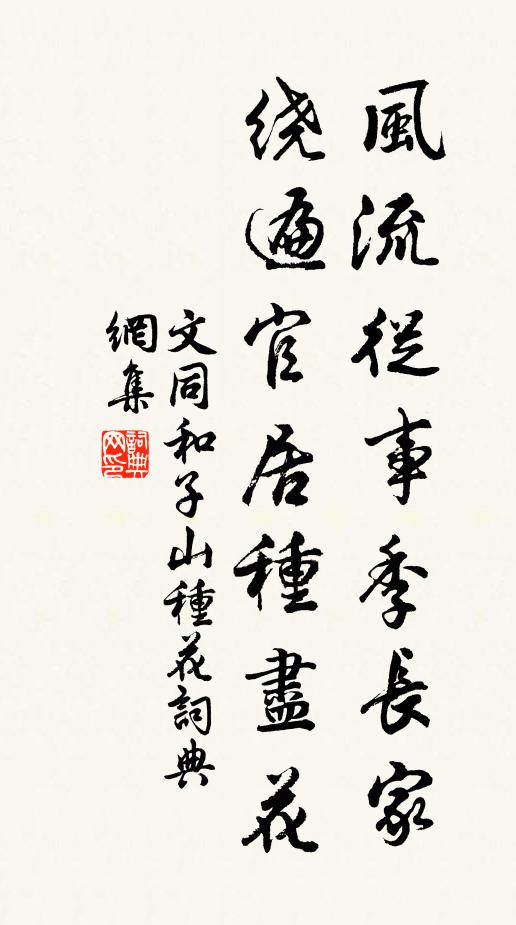 風流從事季長家
绕遍官居種盡花
文同和子山種花詞典
網集
詞典
网印